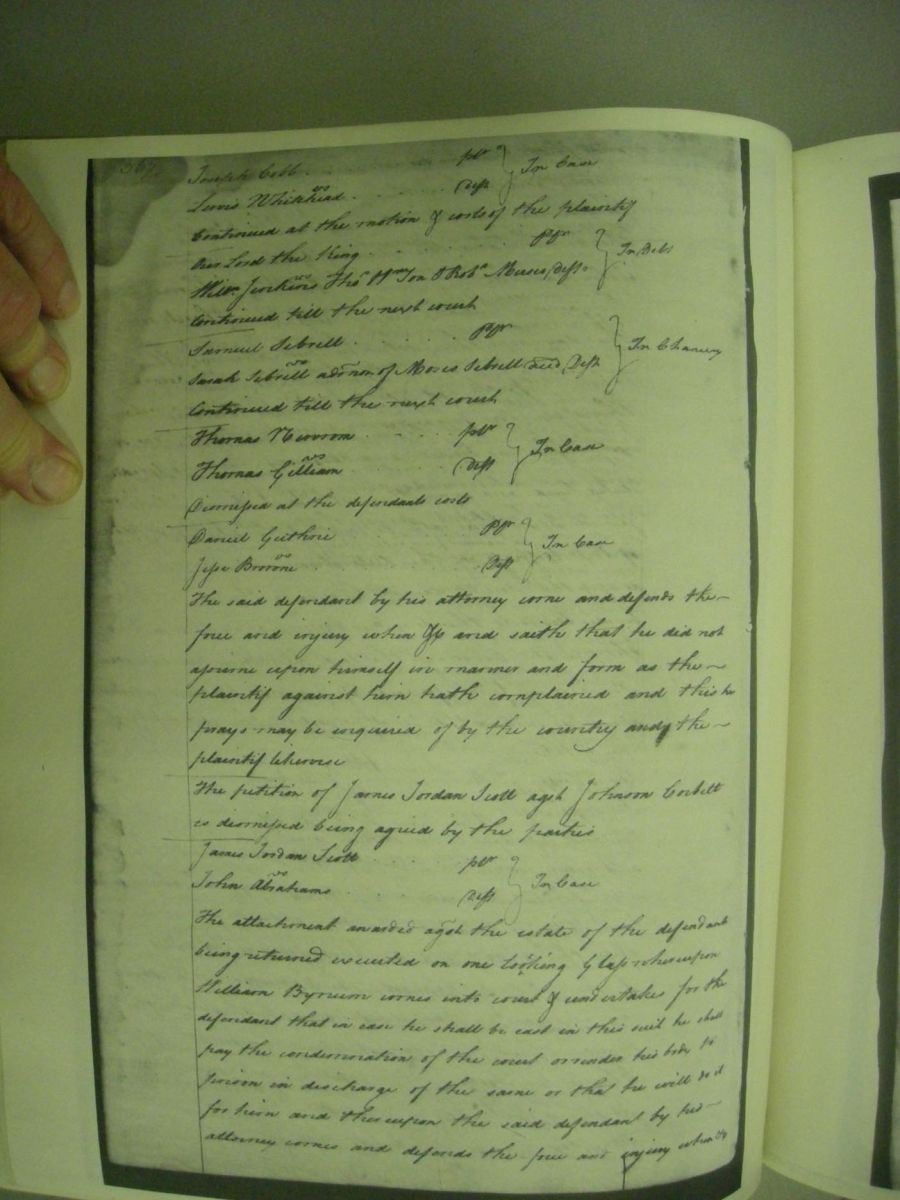 Joseph Cobb . plt } In Case
vs
Lewis Whitehead . . . . . . . Deft
Continued at the motion & costs of the plaintif
Our Lord the King . . . . . . . pltf } In Debt
vs
Willm Jenkins Thos Wm Jon & Robt Deft
Continued till the next court
Samuel Sebrell . . . . . . pltf } In Chancery
vs
Sarah Sebrell admr non of Moses Sebrell decd Deft
Continued till the next court
Thomas Newsom . . . . plt } In Case
vs
Thomas Gilliam Deft
Dismissed at the defendants costs
Daniel Guthrie pltf } In Case
vs
Jesse Browne . Deft
The said defendant by his attorney come and defends the
force and injury when &c and saith that he did not
assume upon himself in manner and form as the
plaintif against him hath complained and this he
prays may be enquired of by the country and the
plaintif likewise
The petition of James Jordan Scott agst Johnson Corbett
is dismissed being agreed by the parties
James Jordan Scott . . . . plt } In Case
vs
John Abrahams . . . . Deft
The attachment awarded agst the estate of the defendant
being returned executed on one looking Glass whereupon
William Bynum comes into court & undertakes for the
defendant that in case he shall be cast in this suit he shall
pay the condemnation of the court or render his body to
prison in discharge of the same or that he will do it
for him and thereupon the said defendant by his
attorney comes and defends the force and injury when &c